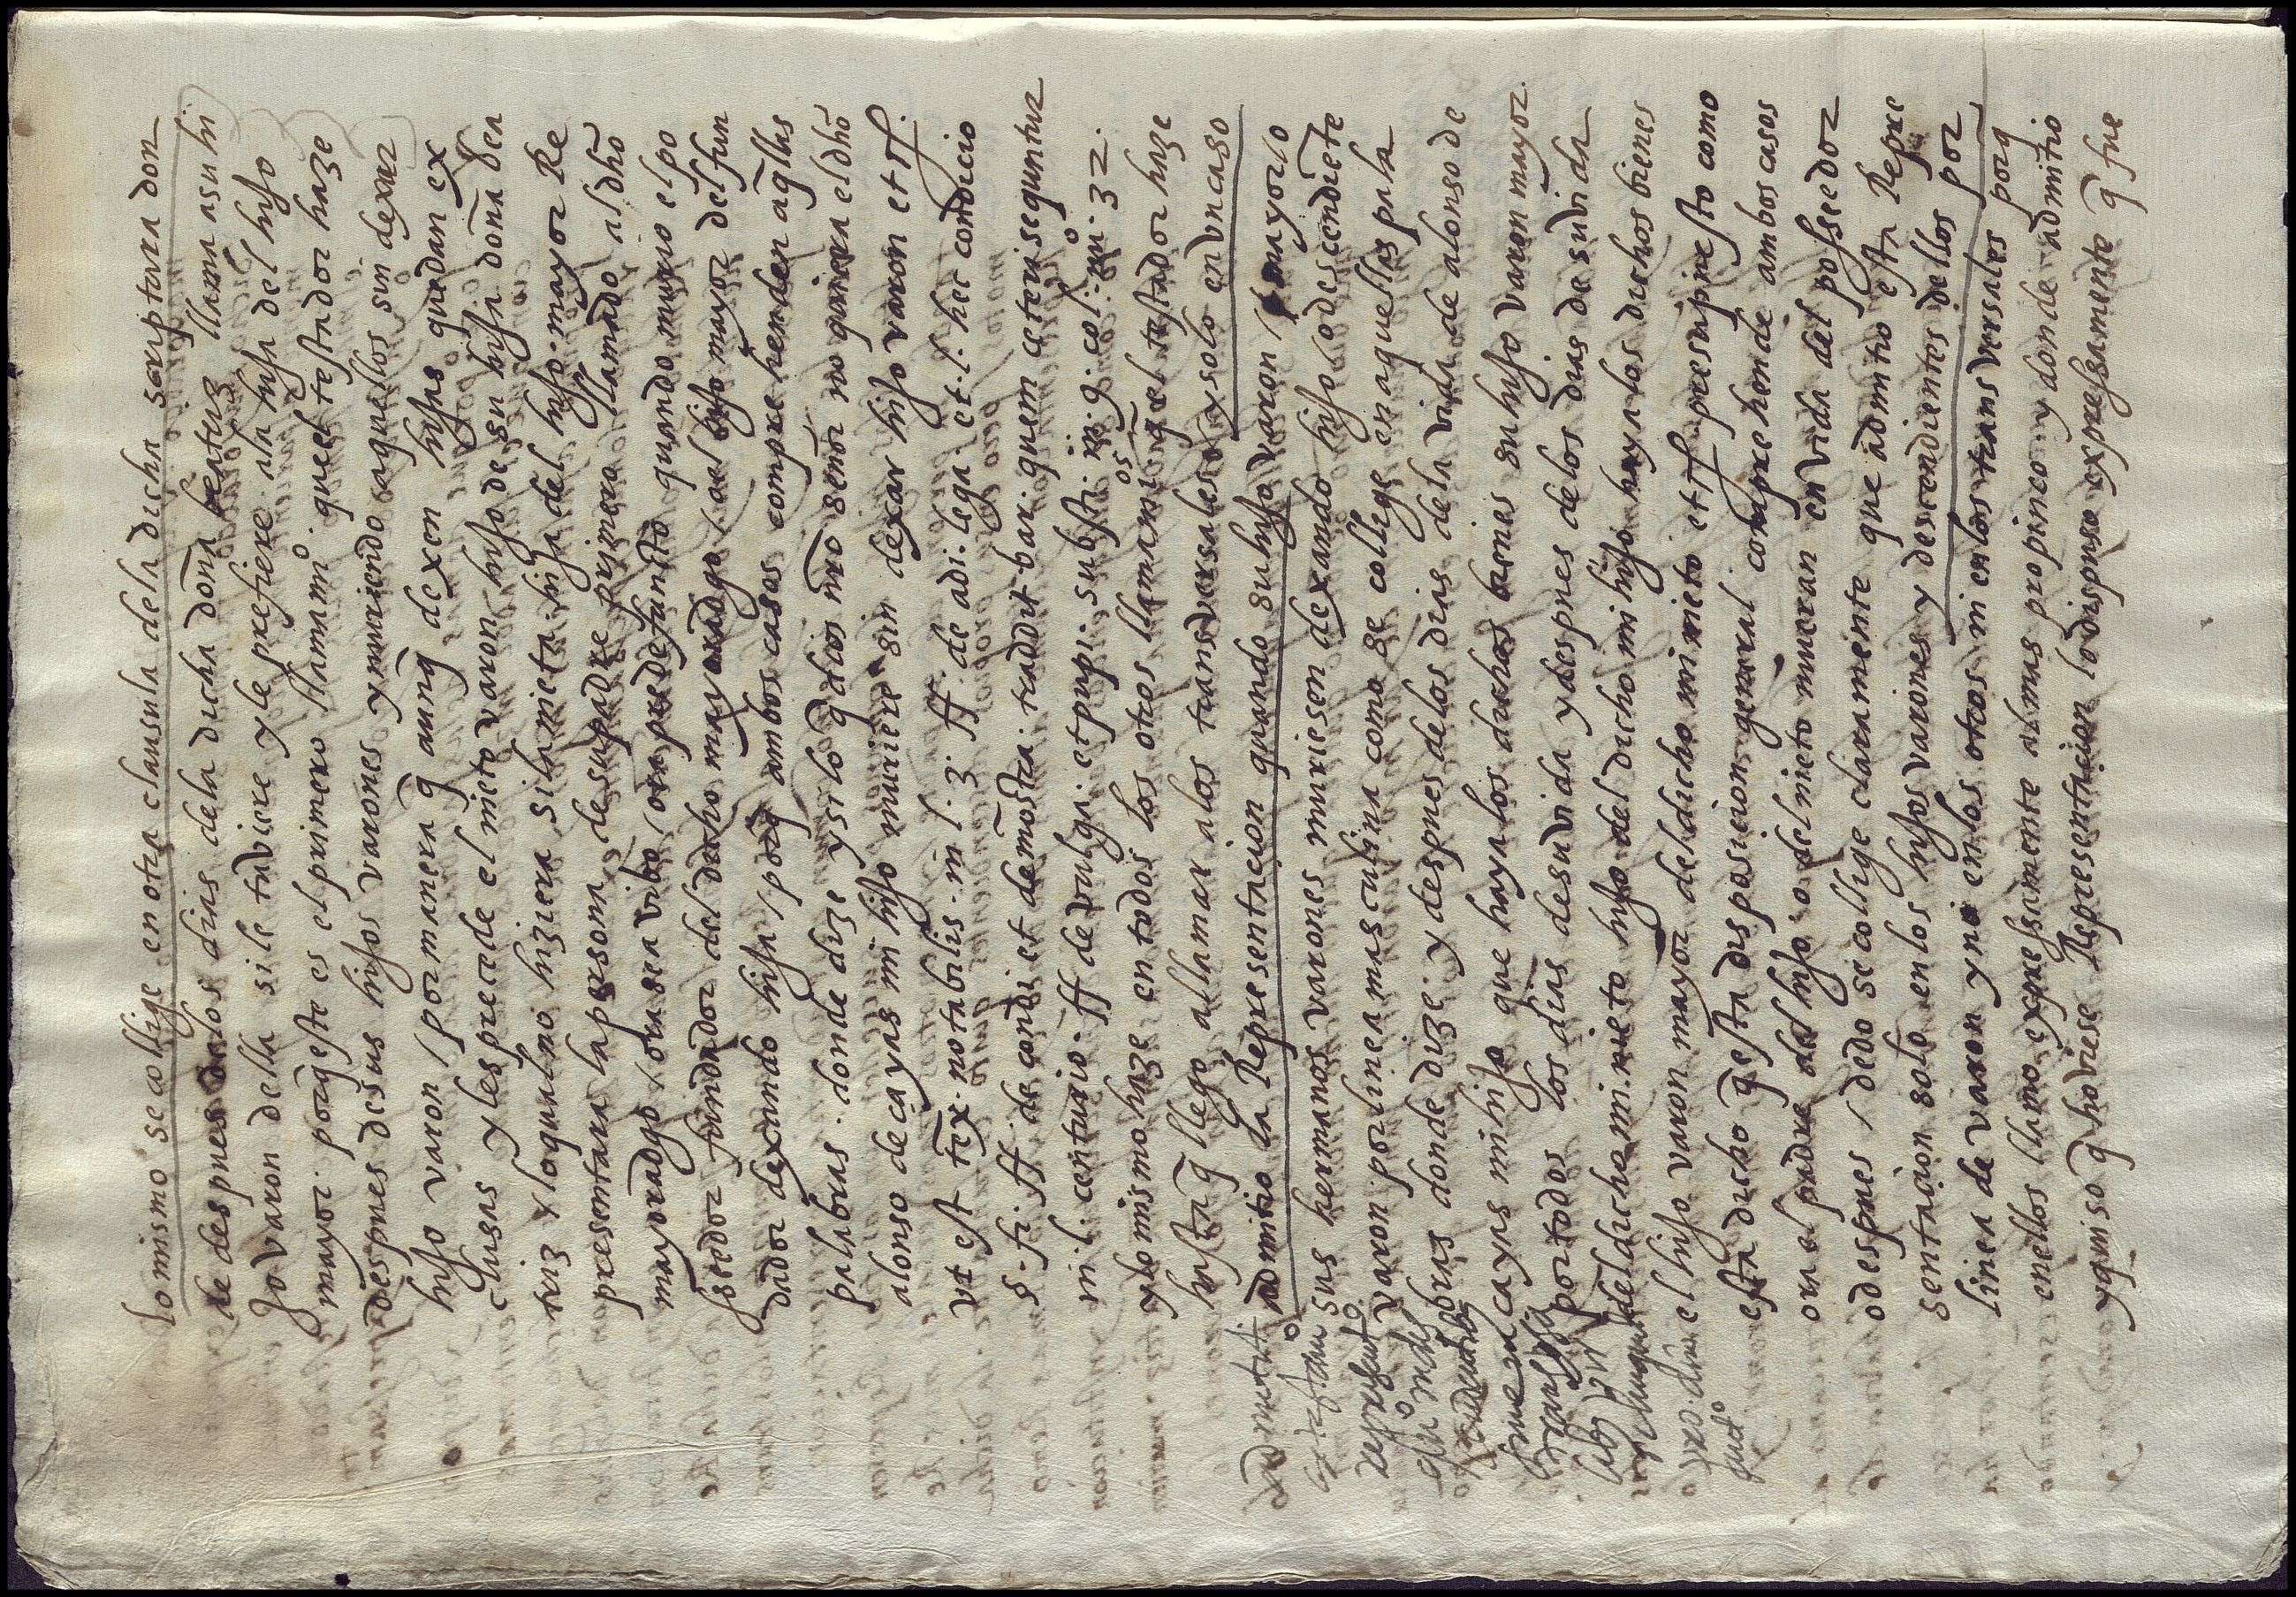 lo mismo se collige en otra clausula de la dicha scriptura don
de despues de los dias de la dicha doña beatriz llama a su hi
jo varon della si le tuviere y le prefiere a la hija del hijo
mayor porq̃ este es el primero llamamiº que el testador haze
despues de sus hijos varones y muriendo aquellos sin dexar
hijo varon / por manera q̃ aunq̃ dexen hijas quedan ex
clusas y les precede el nieto varon hijo de su hija doña bea
triz y lo qual no hiziera si la nieta hija del hijo mayor Re
presentara la persona de su padre primero llamado al dho
mayoradgo / ora sea vibo / ora predefuncto quando murio el po
sseedor fundador del dicho mayoradgo / o al hijo mayor del fun
dador dexando hija / porq̃ ambos casos comprehenden aq̃llas
palabras donde dize y si lo q̃ dios nr̃o señor no quiera el dho
alonso de cayas mi hijo muriere sin dexar hijo varon etſ.
vt est tex. notabilis. in l. 3. ff. de adi. lega. et. l. hec condicio
§. fi. ff. de condi. et demõstra. traddit bar. quem ceteri sequntur
in l. centurio. ff de vulga. et pupi. substi. in 9. col. nuº 32.
y lo mismo haze en todos los otros llamamiᵒˢ q̃ el testador haze
hasta q̃ llego a llamar a los transversales / y solo en vn caso
admitio la Representacion quando su hijo varon / mayor / o
sus hermanos varones muriesen dexando hijo / o descendiẽte
varon por linea masculina como se collige en aquellas pala
bras donde dize y despues de los dias de la vida de alonso de
cayas mi hijo que haya los dichos bienes su hijo varon mayor
por todos los dias de su vida y despues de los dias de su vida
del dicho mi nieto hijo del dicho mi hijo haya los dichos bienes
el hijo varon mayor del dicho mi nieto etſ. presupuesto como
esta dicho q̃ esta disposicion general comprehende ambos casos
ora el padre del hijo o del nieto mueran en vida del possedor
o despues / dedo se collige claramente que admitio esta Repre
sentaçion solo en los hijos varones y descendientes dellos por
linea de varon y no en los otros ni en los transversales porq̃
en ellos llamo expressamente al mas propinco y donde admitio
y quiso q̃ hoviese Representacion lo dispuso expressamente q̃ fue